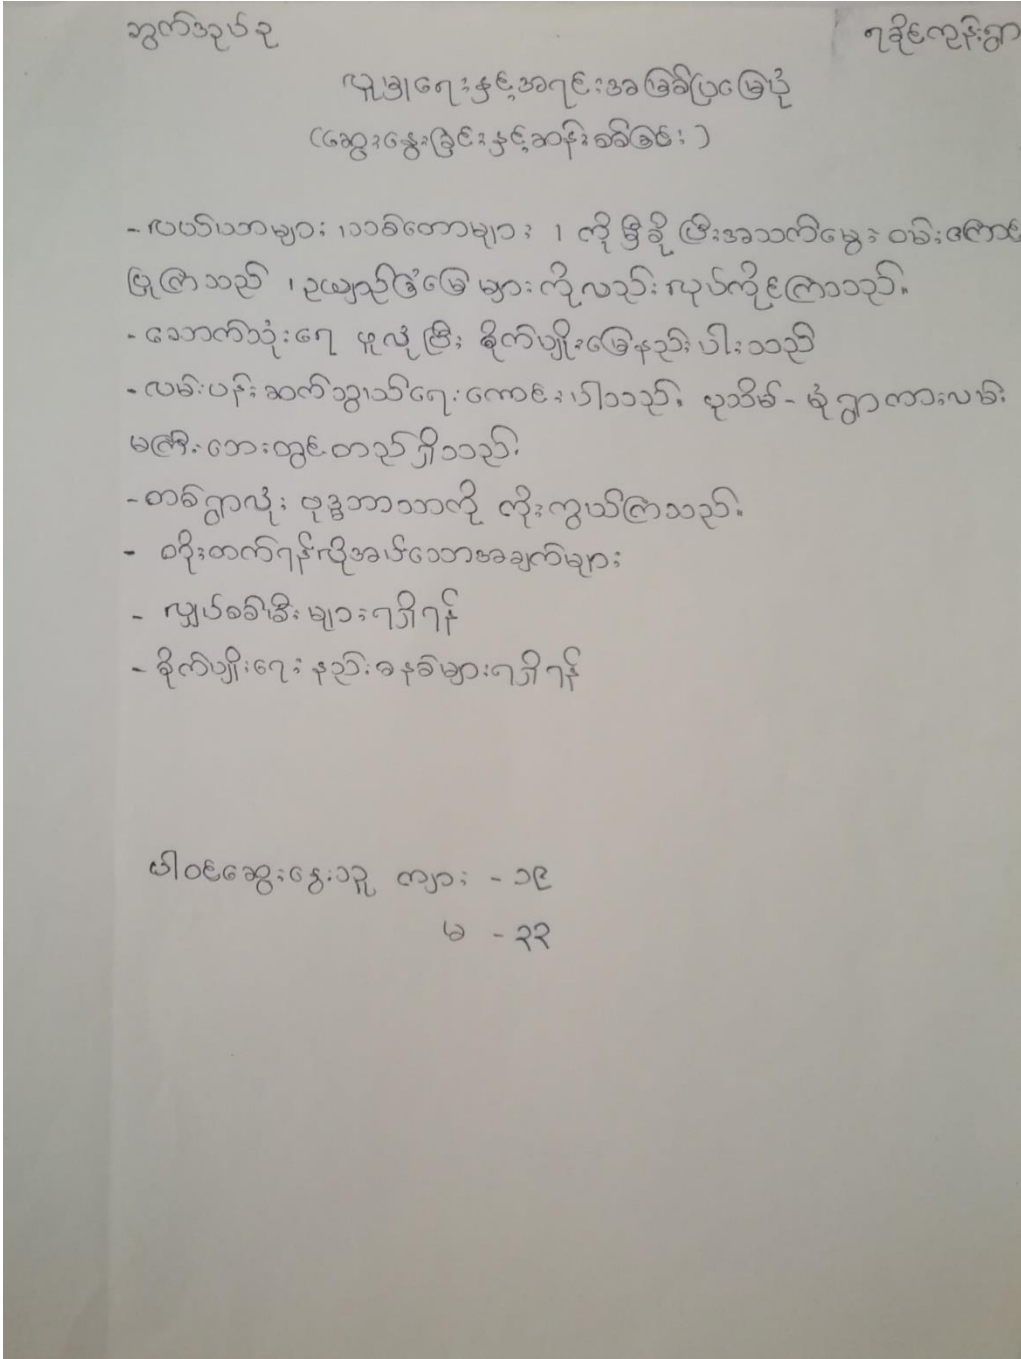 ဘွက်ဒဉယ်ခု ရခိုင်ကုန်းရွာ
လူမှုရေးနှင့်အရင်းအမြစ်ပြမြေပုံ
(ဆွေးနွေးခြင်းနှင့်ဆန်းစစ်ခြင်း)
- လယ်ယာများ ၊သစ်တောများ ၊ ကိုမှီခိုပြီးအသက်မွေးဝမ်းကျောင်း
ပြုကြသည် ၊ဥယျာဉ်ခြံမြေများကိုလည်းလုပ်ကိုင်ကြသည်။
- သောက်သုံးရေ ဖူလုံပြီး စိုက်ပျိုးမြေနည်းပါးသည်
- လမ်းပန်းဆက်သွယ်ရေးကောင်းပါသည်။ ပုသိမ် - မုံရွာကားလမ်း
မကြီးဘေးတွင်တည်ရှိသည်။
- တစ်ရွာလုံး ဗုဒ္ဓဘာသာကို ကိုးကွယ်ကြသည်။
- တိုးတက်ရန်လိုအပ်သောအချက်များ
- လျှပ်စစ်မီးများရရှိရန်
- စိုက်ပျိုးရေးနည်းစနစ်များရရှိရန်
ပါဝင်ဆွေးနွေးသူ ကျား - ၁၉
မ - ၃၃